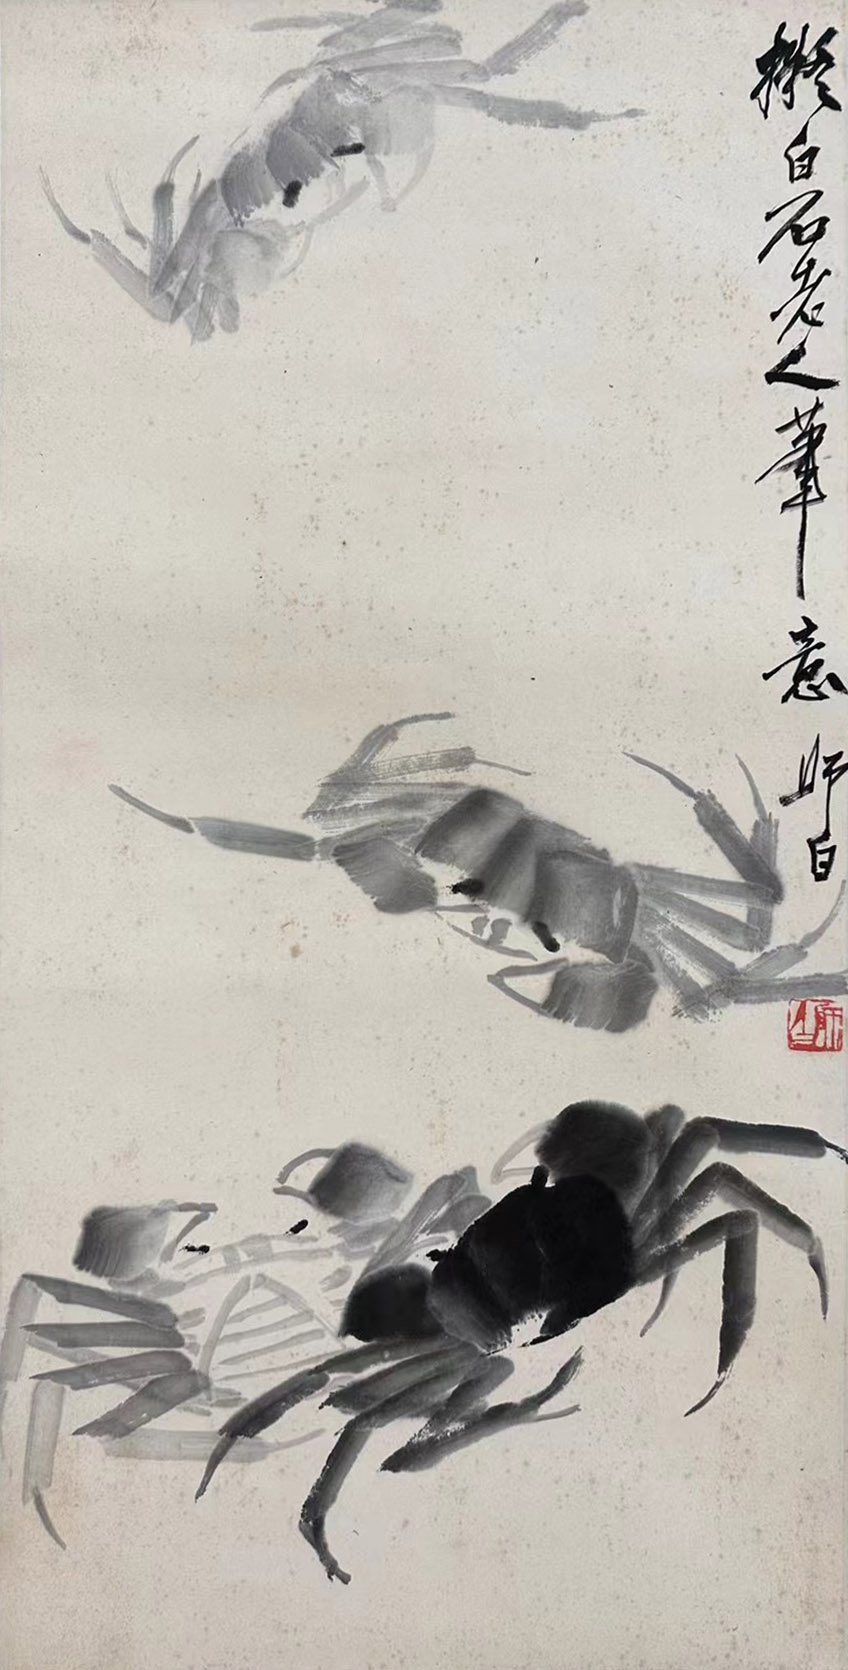 擬白石老人筆意 师白